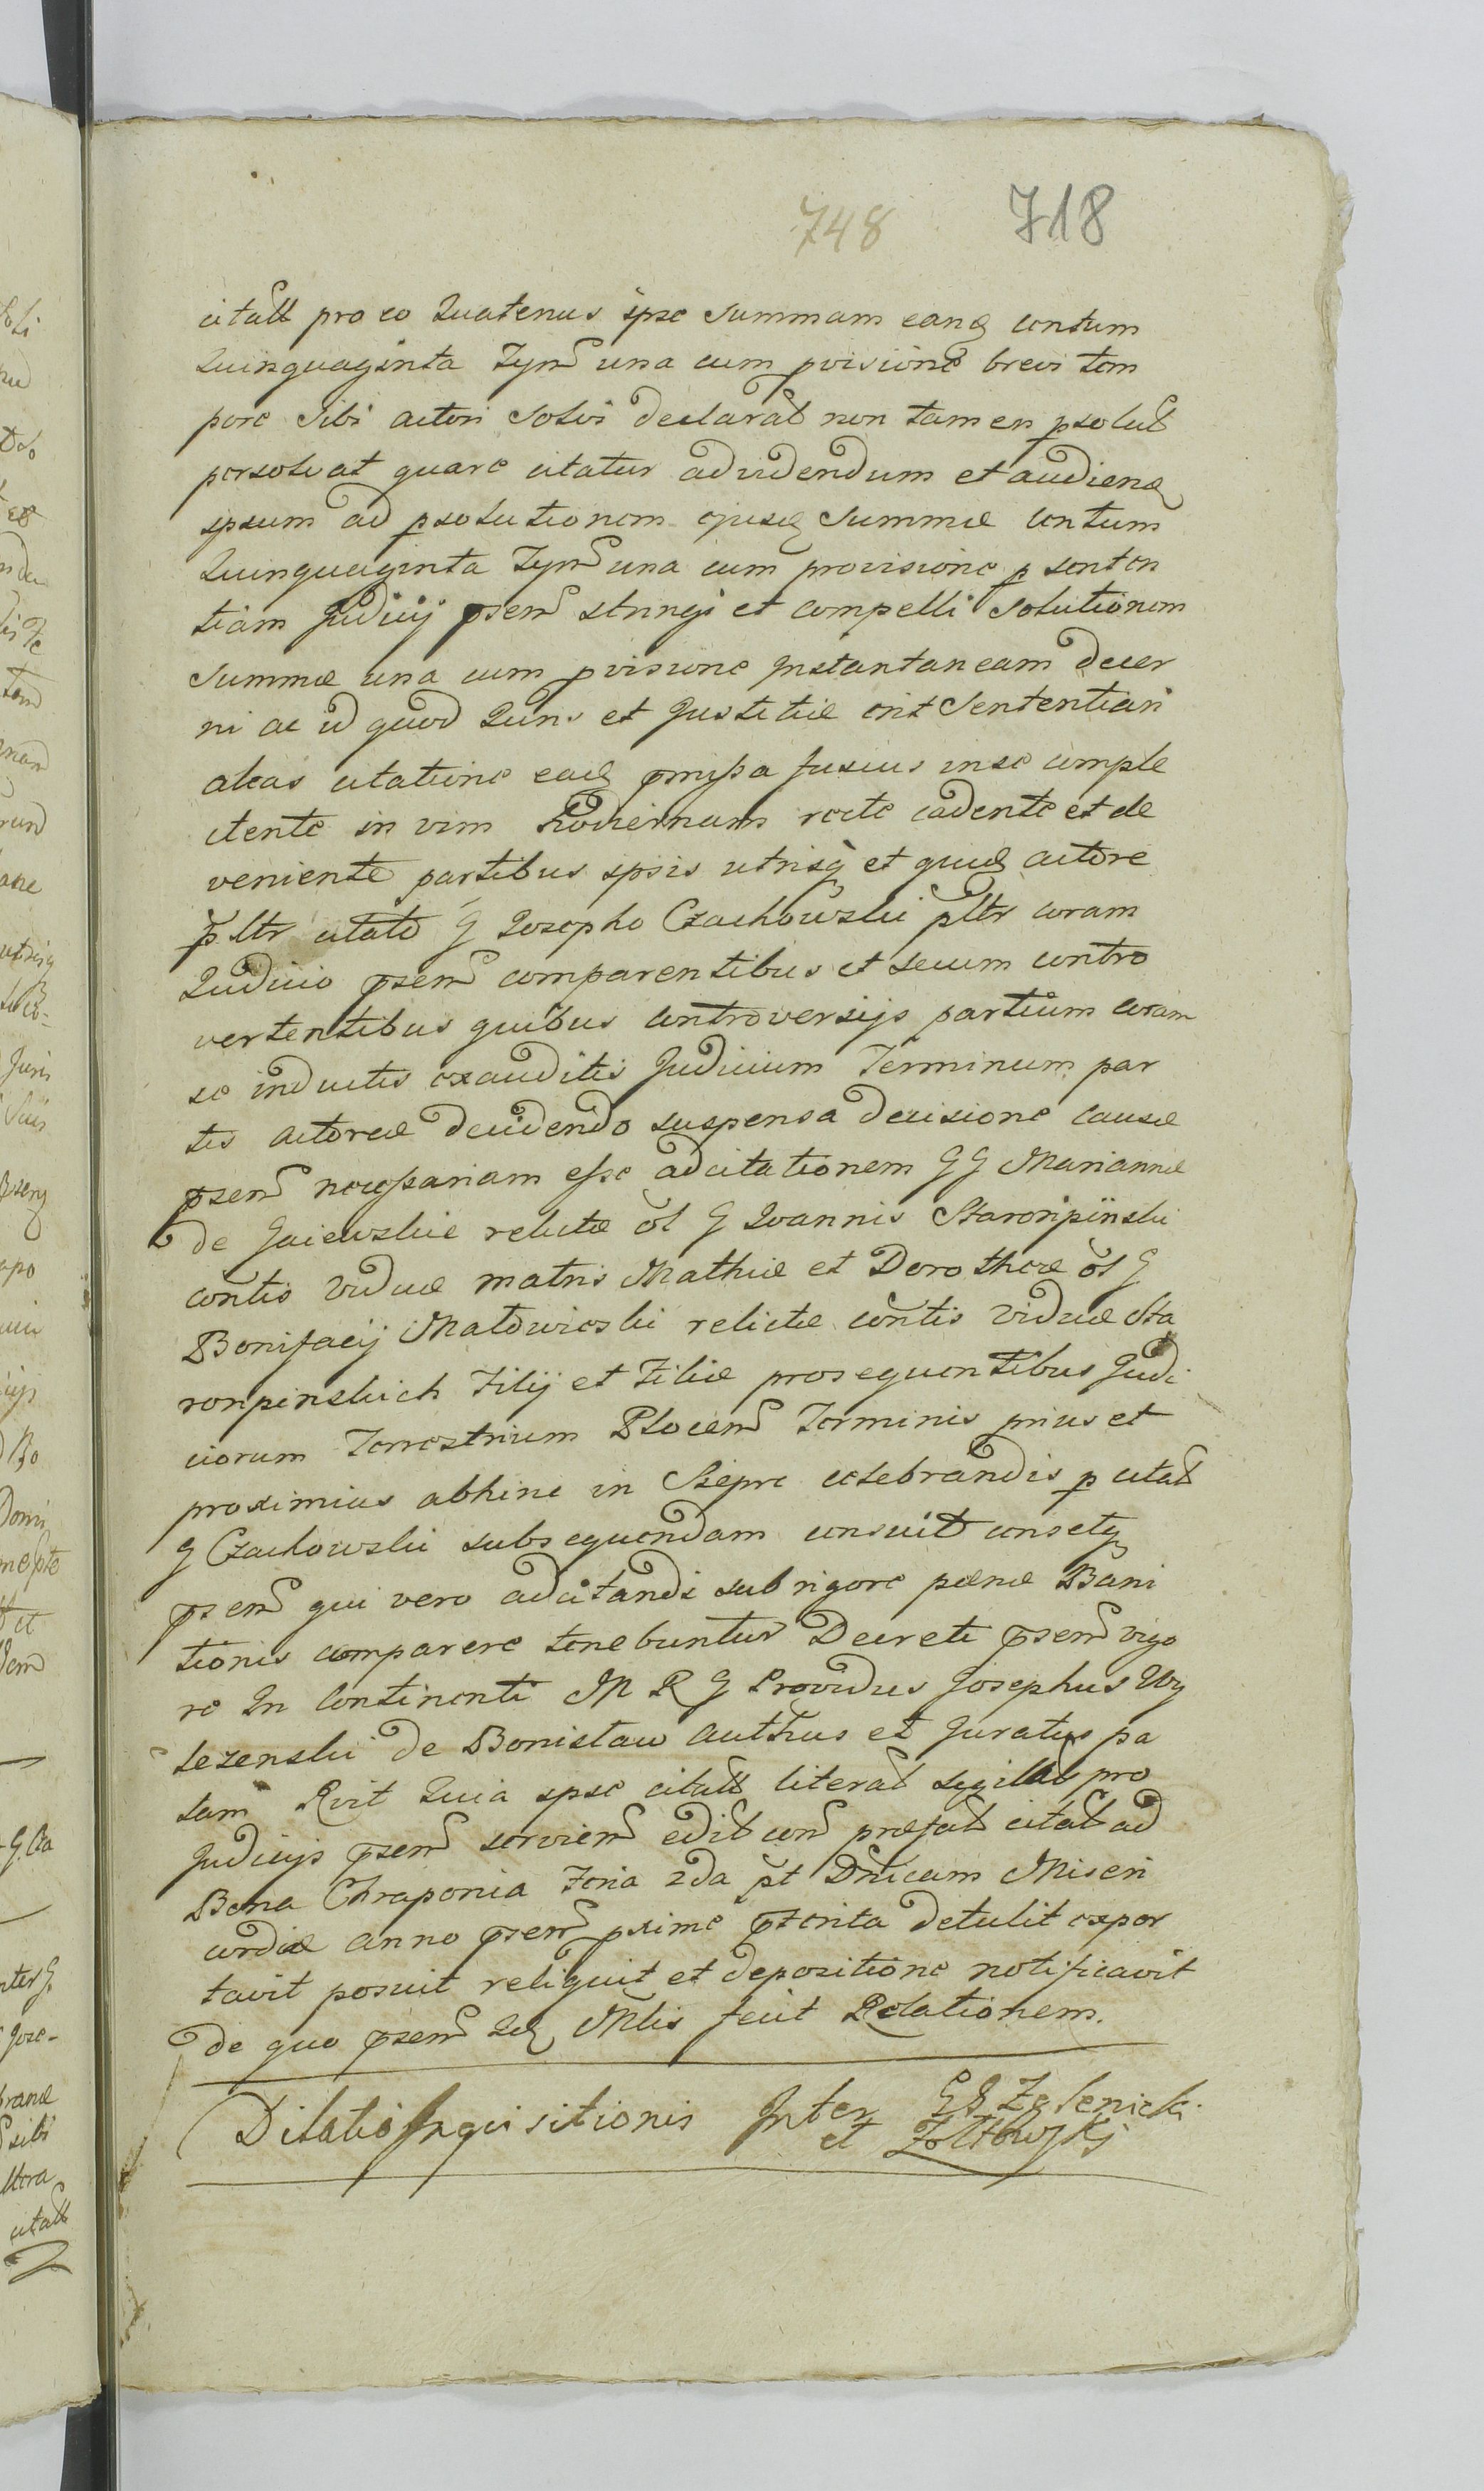 748 718
citatt pro eo Quatenus ipse Summam eanq centum
Quinquaginta Tymf una cum pvisione brevi tem
pore Sibi actori Solvi declarat non tamen psolut
persolvat quare citatur ad videndum et audienq
ipsum ad psolutionem ejusq Summæ centum
Quinquaginta Tymf una cum provisione p senten
tiam Judicij psen stringi et compelli Solutionem
Summæ una cum pvisione Instantaneam decer
ni ac id quod Juris et Justitiæ erit Sententiari
aleas citatione eaq pmissa fusius in se comple
ctente in vim hodiernam recte cadente et de
veniente partibus ipsis utrisq et quid actore
p ltr citato G Josepho Czachowski pltr coram
Judicio psen comparentibus et secum contro
vertentibus quibus controversijs partium coram
se inductis exauditis Judicium Terminum par
tis actoreæ decidendo suspensa decisione causæ
psen necessariam esse adcitationem GG Mariannæ
de Gaiewskie relictæ ol G Joannis Staroripinski
contis viduæ matris Mathiæ et Dorotheæ ol G
Bonifacij Malowieski relictæ contis viduæ Sta
roripinskich Filij et Filiæ prosequentibus Judi
ciorum Terrestrium Plocen Terminis prius et
proximius abhinc in Siepre celebrandis p citat
G Czachowski subsequendam censuit censetq
psen qui vero adcitandi sub rigore pænæ Bani
tionis comparere tenebuntur Decreti psen vigo
re In Continenti M R G Providus Josephus Wy
sezenski de Bonislaw authus et Juratus pa
lam Rvit Quia ipse citatt literat sigillat pro
Judicijs psen servien edit con præfat citat ad
Bona Chraponia Feria 2da pt Dnicam Miseri
cordiæ anno psen pxime pterita detulit expor
tavit posuit reliquit et depositione notificavit
de quo psen Suq Mlis fecit Relationem.
Dilatio Inquisitionis Inter GG Zelenieki
et Zoltowskj